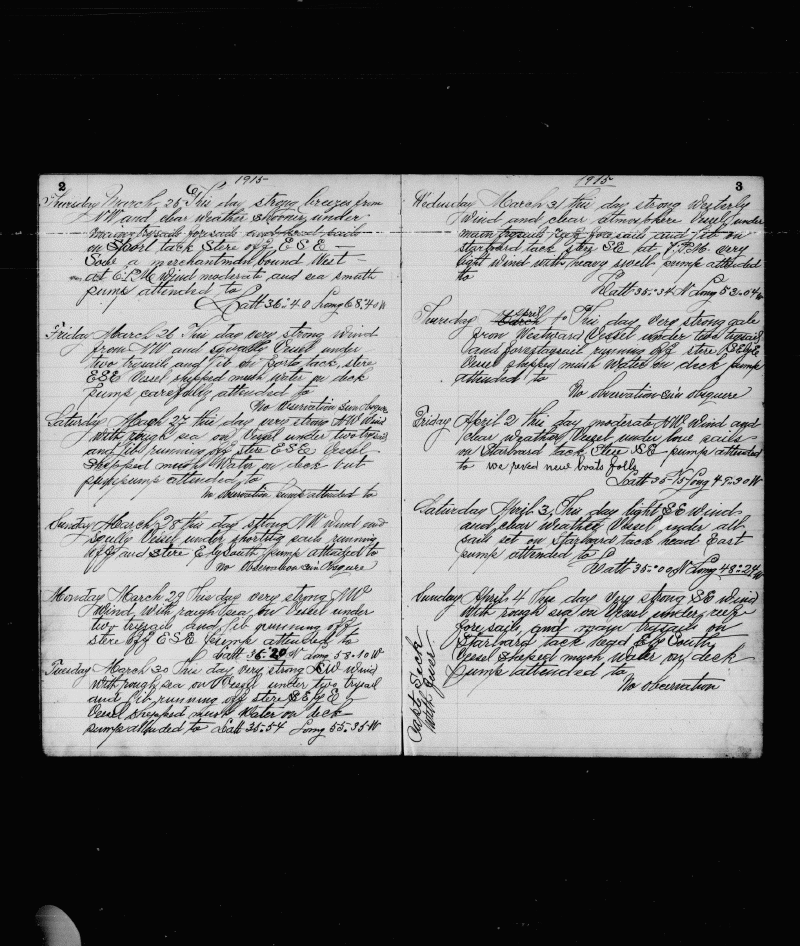 2
1915
Thursday March 25 This day strong breezes from
NW and clear weather under
main trysail foresail and head sails
on Port tack Stere off E S E —
Sode a merchantman bound West —
at 6 P.M. Wind moderate and sea smath
pump attended to
Latt 36:40 Long 68:40 W
Friday March 26 This day very strong wind
from NW and squally Vesel under
two trysails and jib on port tack, stere
ESE Vesel shepped mush water on deck
pump carefully attended to
No observation Sun obquire
Saturday March 27 this day very strong NW Wind
with rough sea on Vesel under two trysail
and jib running off stere E S E Vesel
shepped mush Water on deck but
pump attended to
No observation pump attended to
Sunday March 28 this day strong NW wind and
Vesel under shortity sails running
off and stere E by South pump attended to
no observation sun obsquire
Monday March 29 This day very strong NW
Wind with rough sea on Vesel under
two trysails and jib running off
stere off E S E pump attended to
Latt 36.20 N Long 58.10 W
Tuesday March 30 This day very strong SW wind
with rough sea on Vesel under two trysail
and jib running off stere SE by E
Vesel shepped mush Water on deck
pump attended to Latt 35.54 Long 55.35 W
1915
3
Wedusday March 31 this day strong Westerly
Wind and clear atmosphere Vesel under
main trysail foresail and jib on
starboard tack stere SE at P.M. very
light wind with heavy swell pump attended
to
Latt 35:34 N Long 53.04 W
Thursday March april 1 This day very strong gale
from Westward Vessel under two trysail
and forestaysail running off stere SE by E
Vesel shepped mush Water on deck pump
attended to
No observation sun obsquire
Friday April 2 this day moderate NW wind and
clear weather Vesel under lowe sails
on Starbard tack Stere SE pump attended
to we reved new boats folls
Latt 35.15 Long 49.30 W
Saturday April 3 This day light SE Wind
and clear weather Vesel under all
sail set on starbard tack head East
pump attended to
Latt 35:00 N Long 48:24 W
Sunday April 4 this day very strong SE Wind
with rough sea on Vesel under
foresails, and main trysail on
Starbard tack head E by South
Vesel sheped mush Water on deck
pump attended to
No observation
Casty Seck
with fever